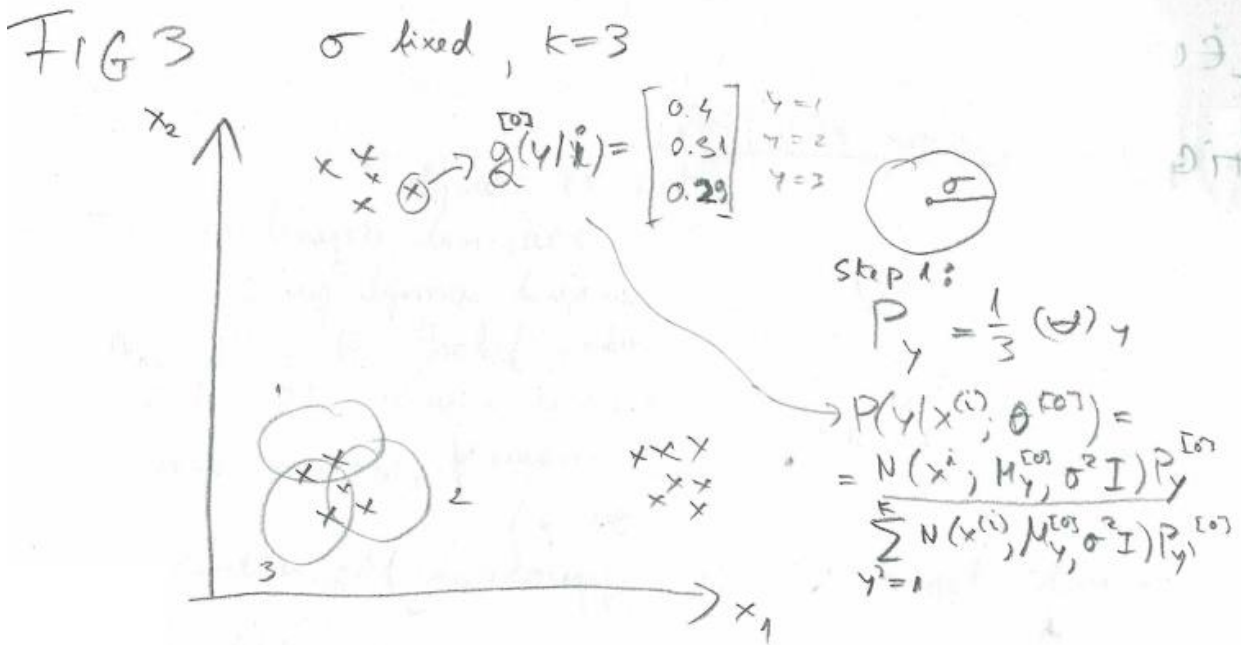 FIG 3 σ fixed, k=3
x₂
q^[0](y/i) = [0.4 0.31 0.29] y=1 y=2 y=3
σ
step 1:
P_y = 1/3 (∀) y
P(y/x^(i); θ^[0]) =
= N(x^i; μ_y^[0], σ²I) P_y^[0]
Σ_{y'=1}^{k} N(x^(i); μ_y'^[0], σ²I) P_y'^[0]
1
2
3
x₁